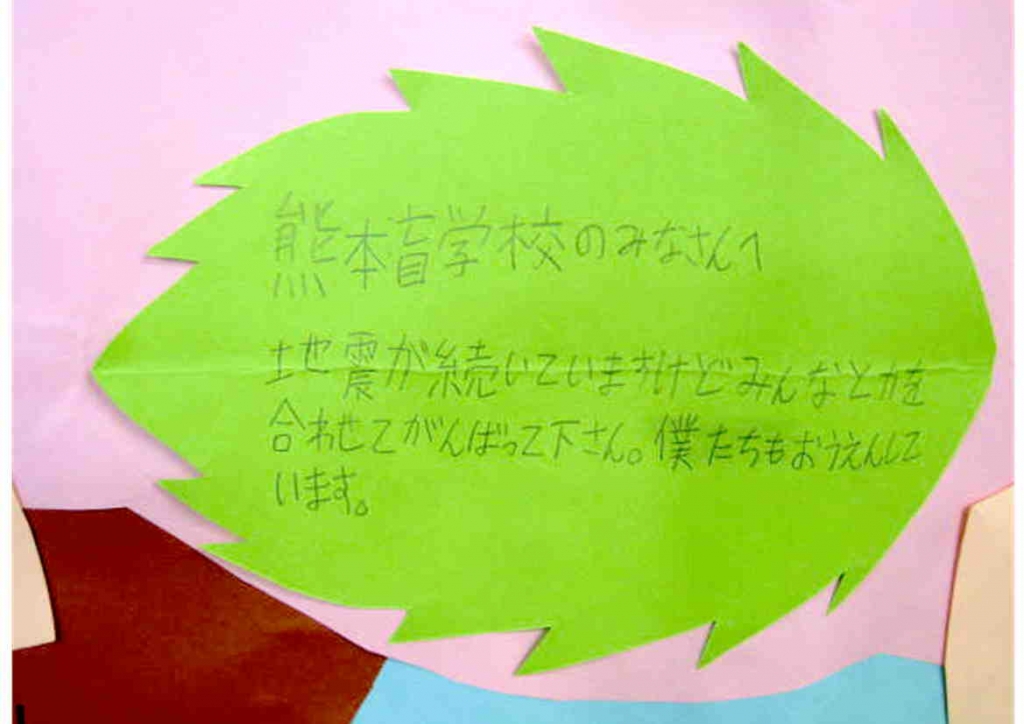 熊本盲学校のみなさんへ
地震が続いていますけどみんなと力を
合わせてがんばって下さん。僕たちもおうえんして
います。